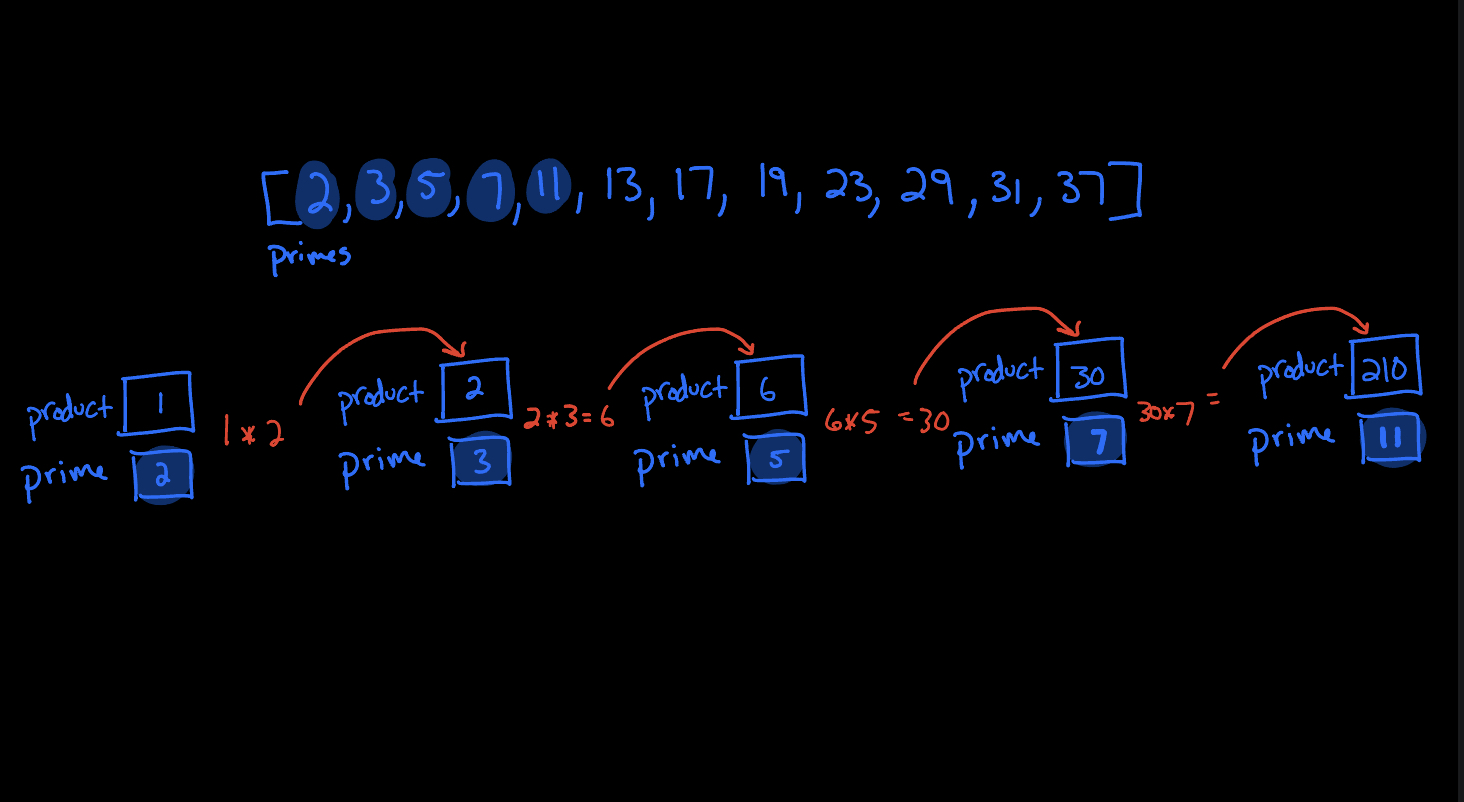 [2, 3, 5, 7, 11, 13, 17, 19, 23, 29, 31, 37]
primes
product 1
prime 2
1 * 2
product 2
prime 3
2 * 3 = 6
product 6
prime 5
6 * 5 = 30
product 30
prime 7
30 * 7 =
product 210
prime 11